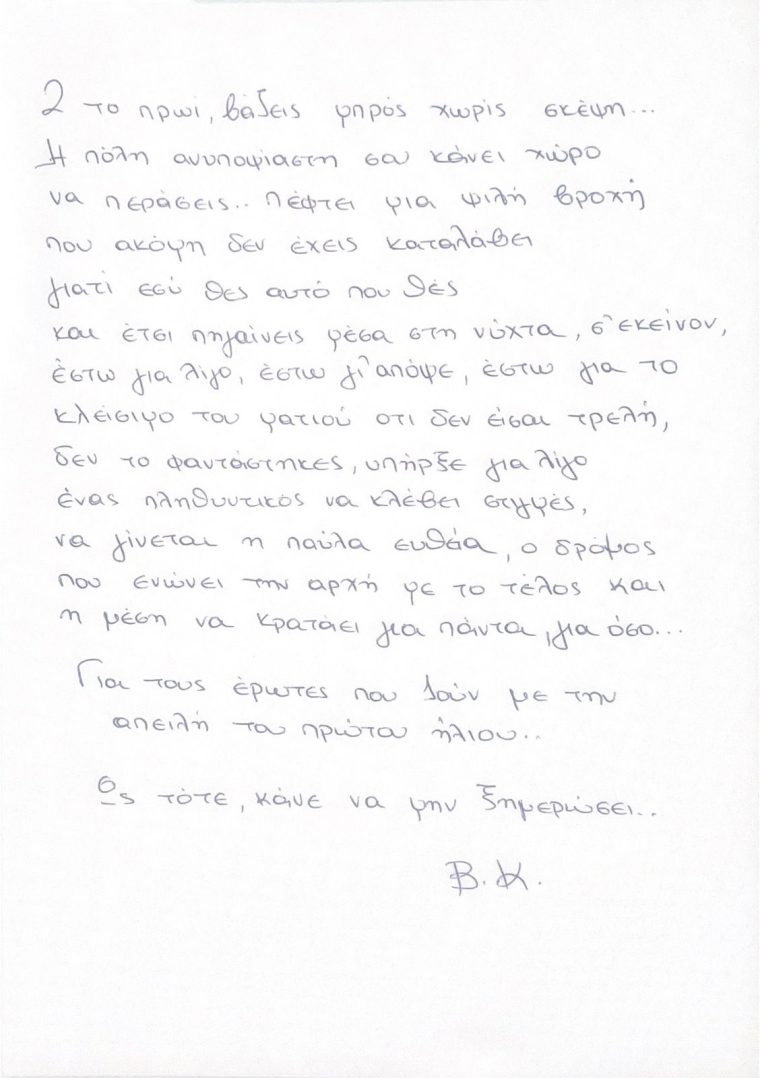 2 το πρωί, βάζεις μπρός χωρίς σκέψη...
Η πόλη ανυποψίαστη σου κάνει χώρο
να περάσεις.. πέφτει μια ψιλή βροχή
που ακόμη δεν έχεις καταλάβει
γιατί εσύ θες αυτό που θές
και έτσι πηγαίνεις μέσα στη νύχτα, σ' εκείνον,
έστω για λίγο, έστω γι' απόψε, έστω για το
κλείσιμο του ματιού οτι δεν είσαι τρελή,
δεν το φαντάστηκες, υπήρξε για λίγο
ένας πληθυντικός να κλέβει στιγμές,
να γίνεται η παύλα ευθεία, ο δρόμος
που ενώνει την αρχή με το τέλος και
η μέση να κρατάει για πάντα, για όσο...
Για τους έρωτες που ζούν με την
απειλή του πρώτου ήλιου..
Ως τότε, κάνε να μην ξημερώσει..
Β.Κ.